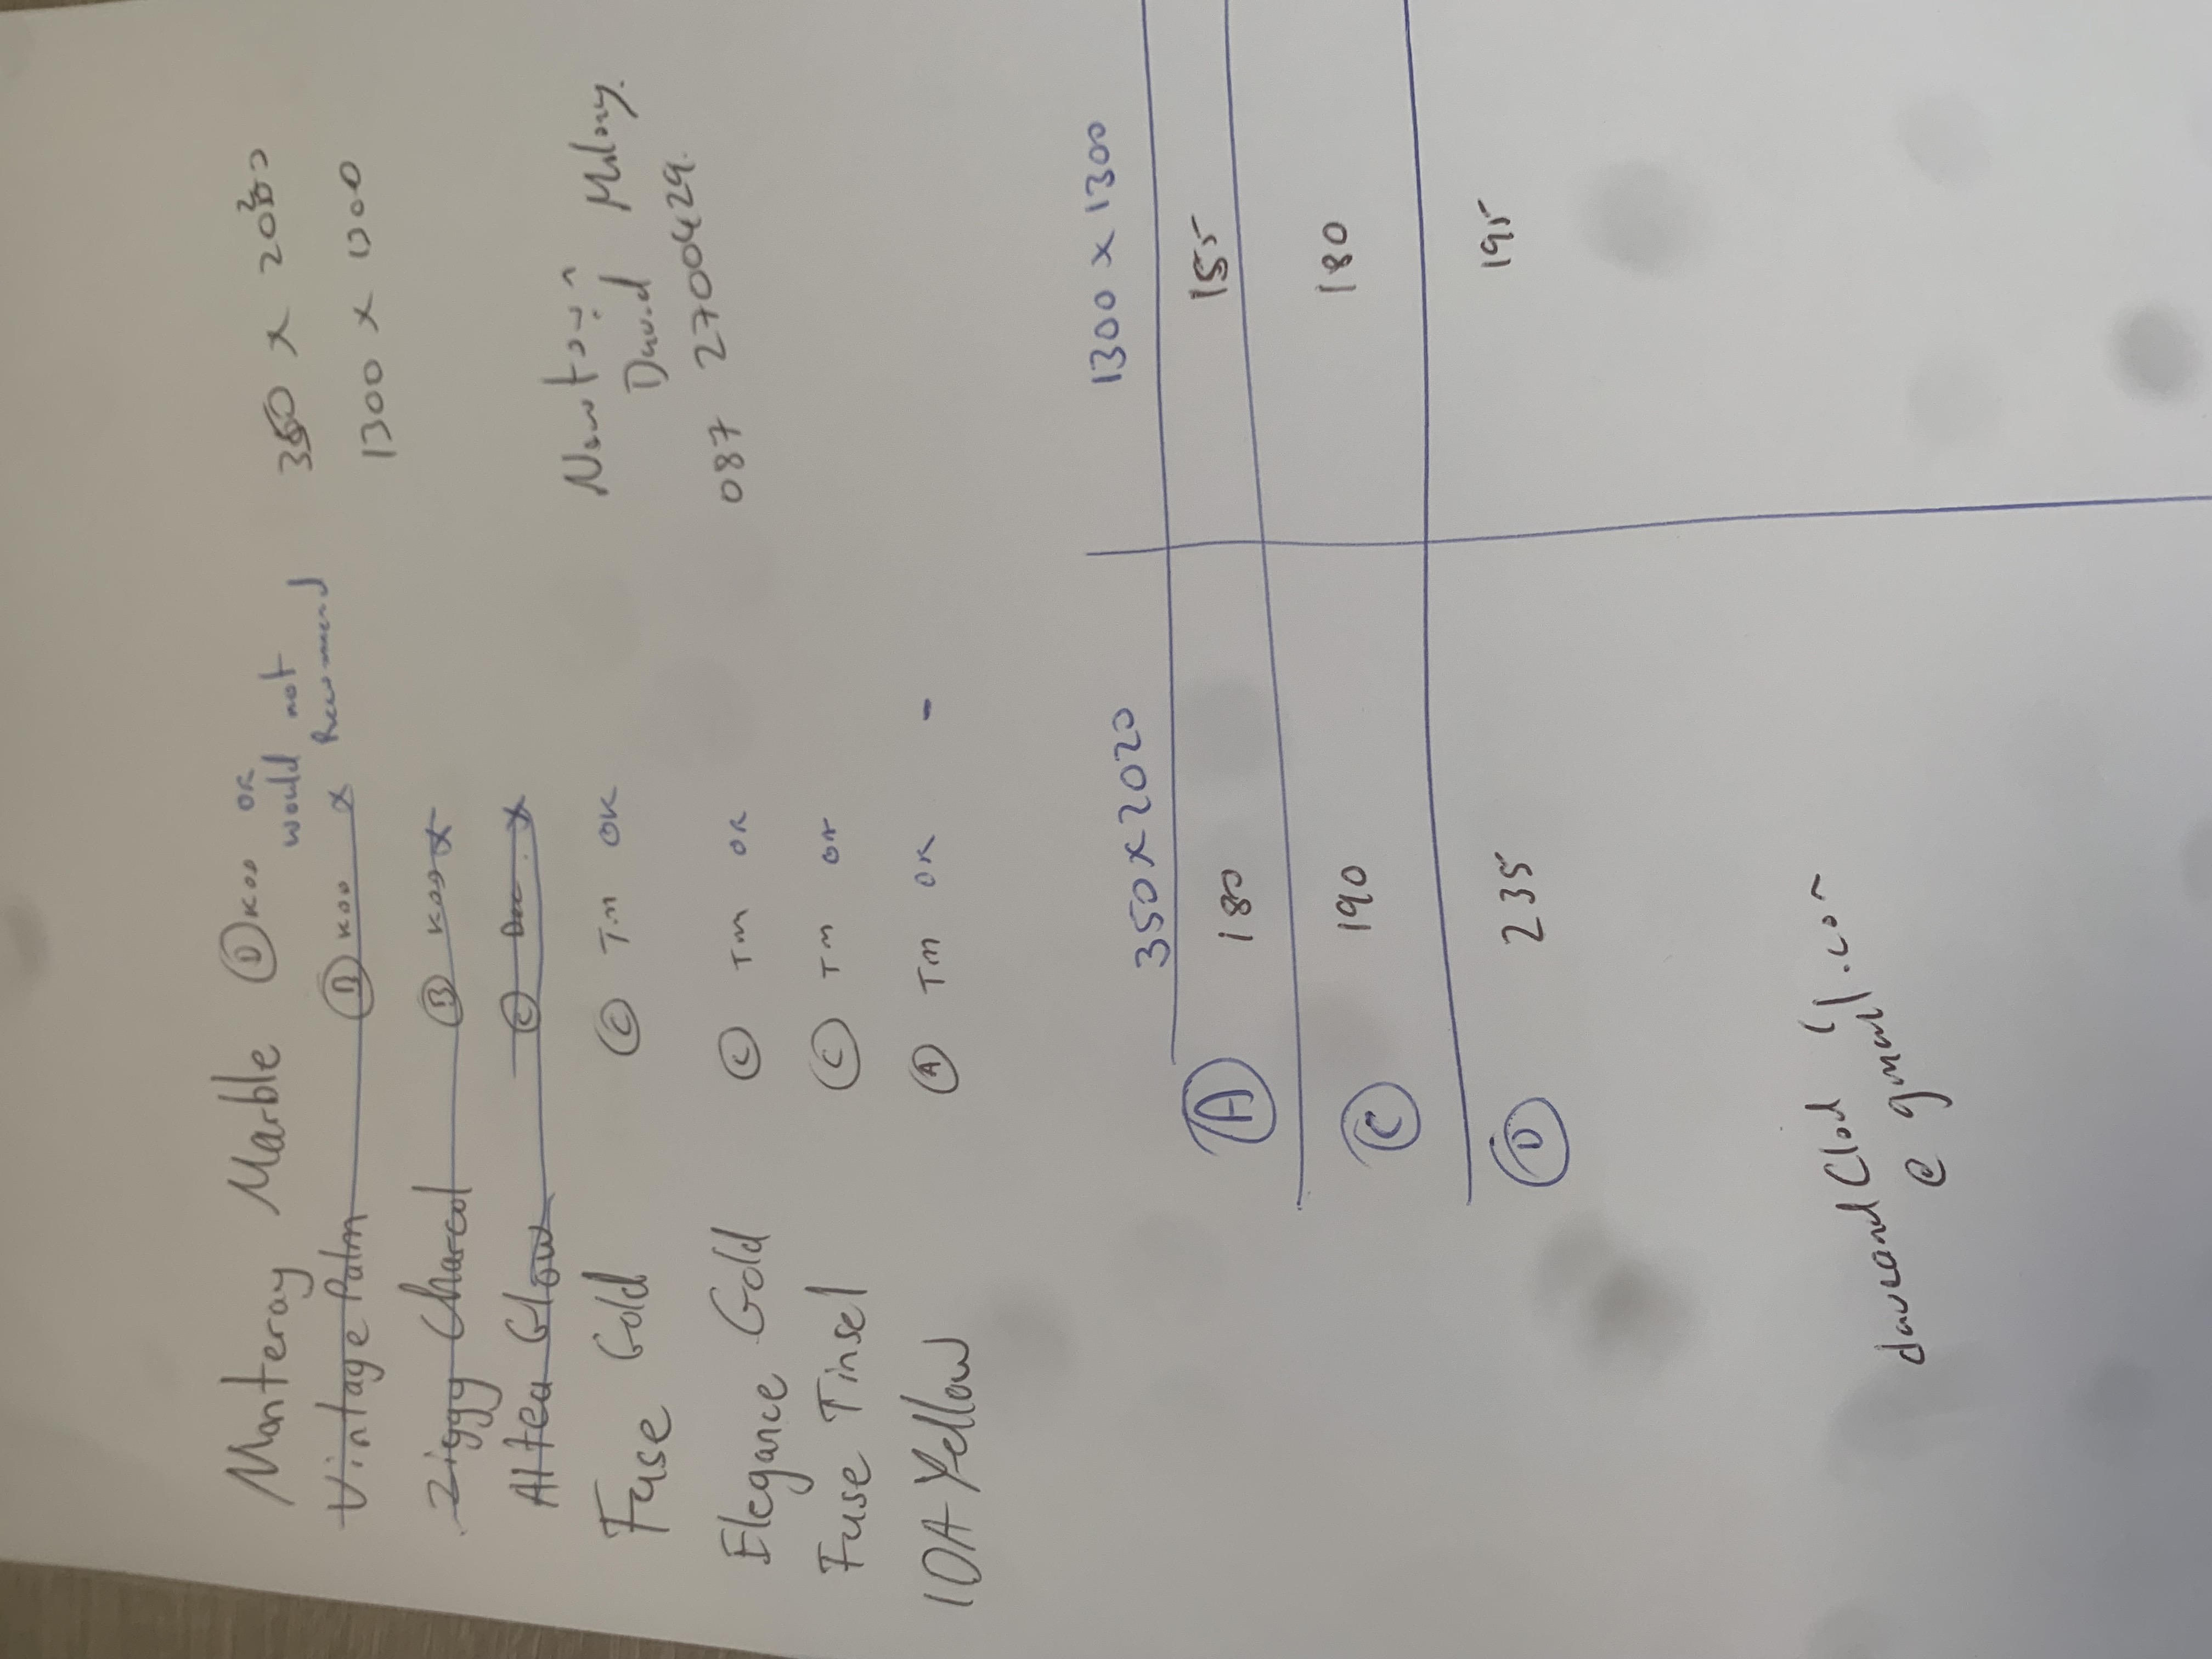 Monteray Marble Ⓓ KOO OK 350 x 2020
would not Recommend
Vintage Palm KOO X 1300 x 1300
Ziggy Charcol Ⓑ KOO X
Altea Glow Ⓒ X
Fuse Gold Ⓒ Tm OK
David Molony.
087 2700429.
Elegance Gold Ⓒ Tm OK
Fuse Tinsel Ⓒ Tm OK
IOA Yellow Ⓐ Tm OK -
350 x 2020 1300 x 1300
Ⓐ 180 155
Ⓒ 190 180
Ⓓ 235 195
@ gmail.com